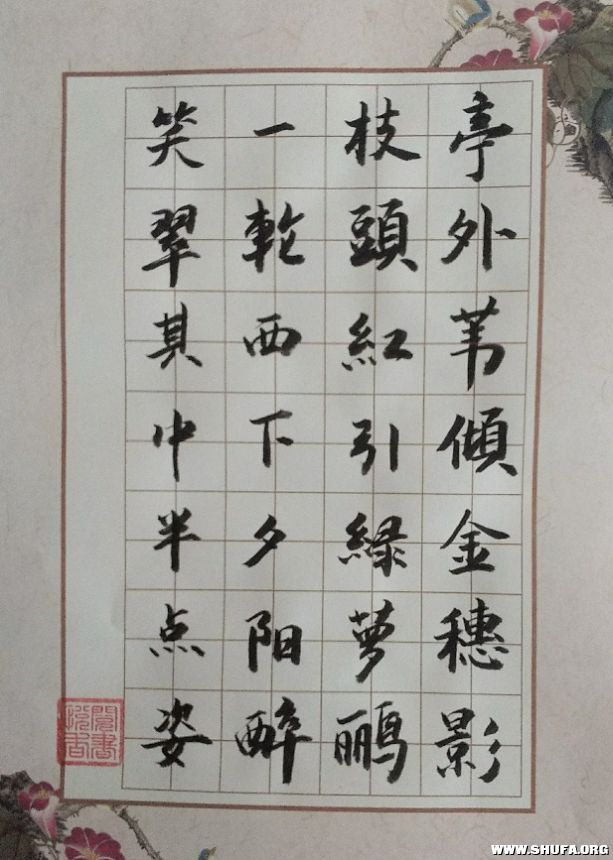 亭外苇傾金穗影
枝頭紅引緑萝鹂
一輪西下夕阳醉
笑翠其中半点姿
WWW.SHUFA.ORG